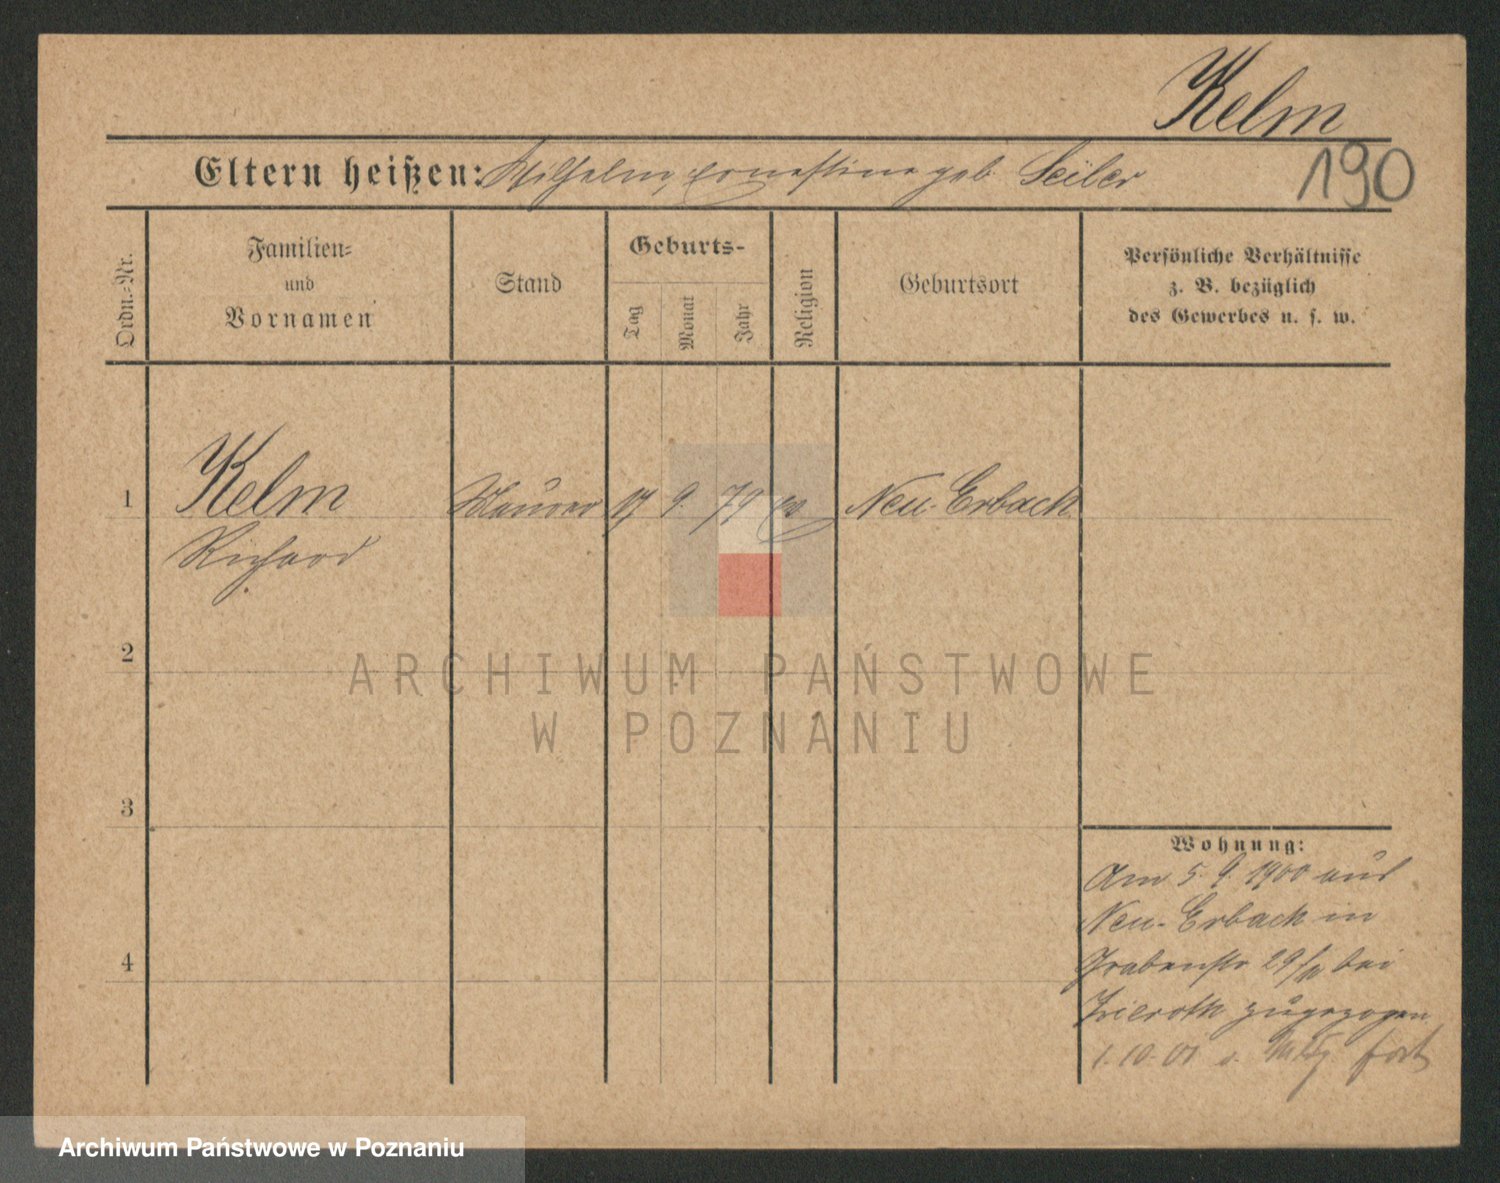 Kelm
190
Eltern heißen: Wilhelm, Ernestine geb. Seiler
Ordn.-Nr.
Familien-
und
Vornamen
Stand
Geburts-
Tag
Monat
Jahr
Religion
Geburtsort
Persönliche Verhältnisse
z. B. bezüglich
des Gewerbes u. s. w.
1 Kelm Maurer 17 9. 79 ev Neu-Erbach
Richard
2
ARCHIWUM PAŃSTWOWE
W POZNANIU
3
Wohnung:
Am 5. 9. 1900 aus
Neu-Erbach in
4
Grabenstr 29 bei
zugezogen
1. 10. 01 fort
Archiwum Państwowe w Poznaniu